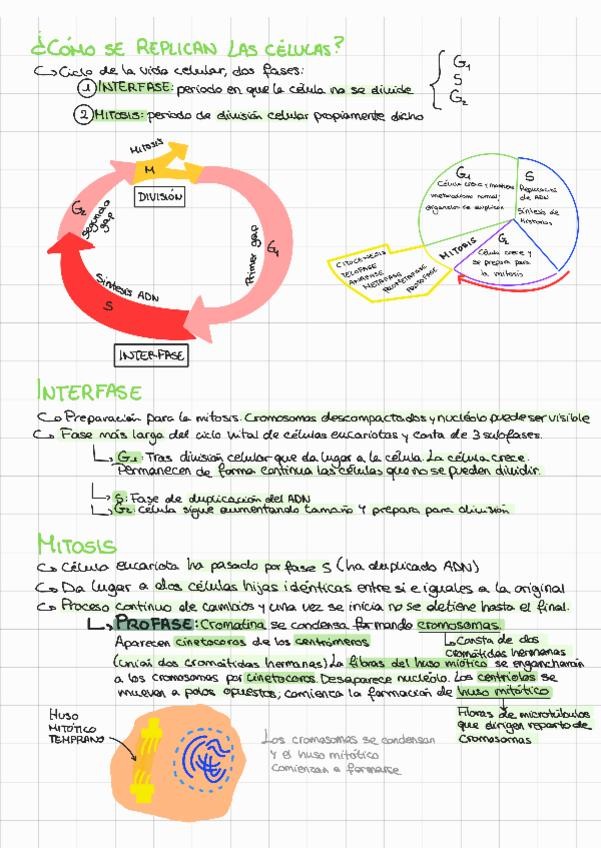 ¿CÓMO SE REPLICAN LAS CÉLULAS?
Ciclo de la vida celular, dos fases:
① INTERFASE: periodo en que la célula no se divide
G1
S
G2
② MITOSIS: periodo de división celular propiamente dicho
MITOSIS
M
DIVISIÓN
G2
Segundo gap
Primer gap
G1
Síntesis ADN
S
INTERFASE
G1
Célula crece y mantiene
metabolismo normal;
organelos se duplican
S
Replicación
de ADN
Síntesis de
histonas
G2
Célula crece y
se prepara para
la mitosis
MITOSIS
CITOCINESIS
TELOFASE
ANAFASE
METAFASE
PROMETAFASE
PROFASE
INTERFASE
Preparación para la mitosis. Cromosomas descompactados y nucléolo puede ser visible
Fase más larga del ciclo vital de células eucariotas y consta de 3 subfases.
G1: Tras división celular que da lugar a la célula. La célula crece.
Permanecen de forma continua las células que no se pueden dividir.
S: Fase de duplicación del ADN
G2: célula sigue aumentando tamaño y prepara para división
MITOSIS
Célula eucariota ha pasado por fase S (ha duplicado ADN)
Da lugar a dos células hijas idénticas entre si e iguales a la original
Proceso continuo de cambios y una vez se inicia no se detiene hasta el final.
PROFASE: Cromatina se condensa formando cromosomas.
Aparecen cinetocoros de los centrómeros
Consta de dos
cromátidas hermanas
(unían dos cromátidas hermanas) La fibras del huso miótico se engancharán
a los cromosomas por cinetocoros. Desaparece nucléolo. Los centriolos se
mueven a polos opuestos, comienza la formación de huso mitótico
Fibras de microtúbulos
que dirigen reparto de
cromosomas
HUSO
MITÓTICO
TEMPRANO
Los cromosomas se condensan
y el huso mitótico
comienzan a formarse